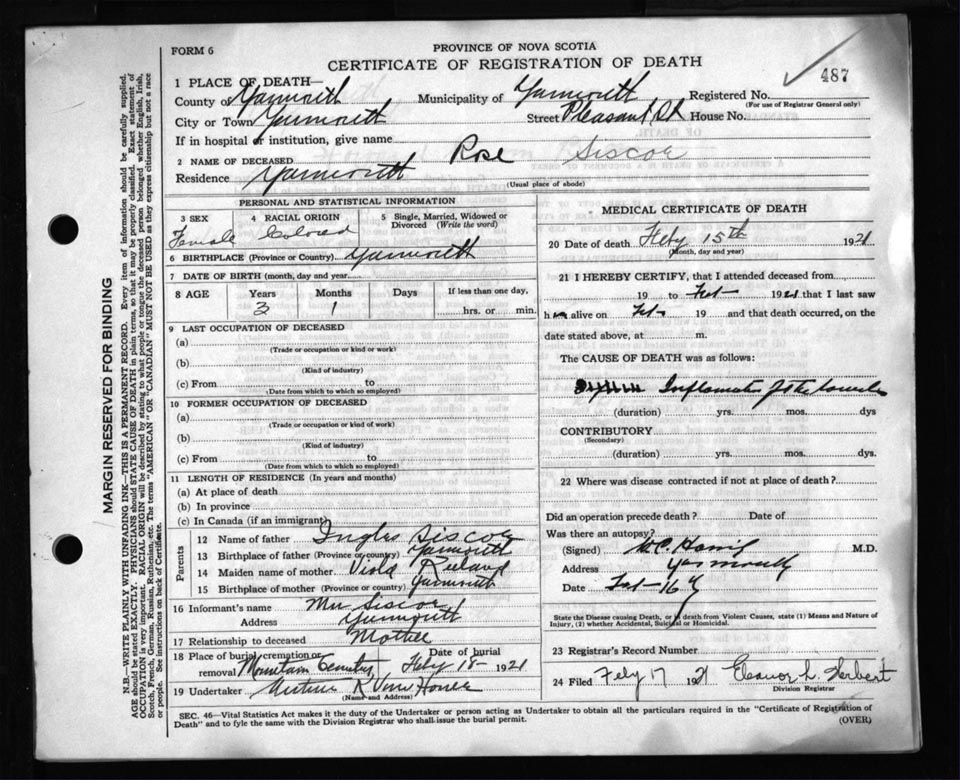 FORM 6
PROVINCE OF NOVA SCOTIA
CERTIFICATE OF REGISTRATION OF DEATH
487
1 PLACE OF DEATH—
County of Yarmouth Municipality of Yarmouth Registered No.
(For use of Registrar General only)
City or Town Yarmouth Street Pleasant St House No.
If in hospital or institution, give name
2 NAME OF DECEASED Rose Siscoe
Residence Yarmouth
(Usual place of abode)
PERSONAL AND STATISTICAL INFORMATION
3 SEX 4 RACIAL ORIGIN 5 Single, Married, Widowed or Divorced (Write the word)
Female Colored
6 BIRTHPLACE (Province or Country) Yarmouth
7 DATE OF BIRTH (month, day and year)
8 AGE Years Months Days If less than one day,
3 1 hrs. or min.
9 LAST OCCUPATION OF DECEASED
(a)
(Trade or occupation or kind or work)
(b)
(Kind of industry)
(c) From to
(Date from which to which so employed)
10 FORMER OCCUPATION OF DECEASED
(a)
(Trade or occupation or kind of work)
(b)
(Kind of industry)
(c) From to
(Date from which to which so employed)
11 LENGTH OF RESIDENCE (In years and months)
(a) At place of death
(b) In province
(c) In Canada (if an immigrant)
Parents
12 Name of father Siscoe
13 Birthplace of father (Province or country) Yarmouth
14 Maiden name of mother Viola
15 Birthplace of mother (Province or country) Yarmouth
16 Informant's name Mrs Siscoe
Address Yarmouth
17 Relationship to deceased Mother
18 Place of burial, cremation or removal Mountain Cemetery Date of burial Feby 18 1921
19 Undertaker
(Name and Address)
MEDICAL CERTIFICATE OF DEATH
20 Date of death Feby 15th 1921
(Month, day and year)
21 I HEREBY CERTIFY, that I attended deceased from
19 to Feb 1921 that I last saw
h alive on Feb 19 and that death occurred, on
date stated above, at m.
The CAUSE OF DEATH was as follows:
of the bowels
(duration) yrs. mos. dys
CONTRIBUTORY
(Secondary)
(duration) yrs. mos. dys.
22 Where was disease contracted if not at place of death?
Did an operation precede death? Date of
Was there an autopsy?
(Signed) M.D.
Address Yarmouth
Date Feb 16
State the Disease causing Death, or in death from Violent Causes, state (1) Means and Nature of
Injury, (2) whether Accidental, Suicidal or Homicidal.
23 Registrar's Record Number
24 Filed Feby 17 1921 Eleanor L. Herbert
Division Registrar
SEC. 46—Vital Statistics Act makes it the duty of the Undertaker or person acting as Undertaker to obtain all the particulars required in the "Certificate of Registration of
Death" and to fyle the same with the Division Registrar who shall issue the burial permit.
(OVER)
MARGIN RESERVED FOR BINDING
N.B.—WRITE PLAINLY WITH UNFADING INK—THIS IS A PERMANENT RECORD. Every item of information should be carefully supplied.
AGE should be stated EXACTLY. PHYSICIANS should STATE CAUSE OF DEATH in plain terms, so that it may be properly classified. Exact statement of
OCCUPATION is very important. RACIAL ORIGIN will be described by stating to what people or tongue the deceased person belonged whether English, Irish,
Scotch, French, German, Russian, Ruthenian, etc. The terms "AMERICAN" or "CANADIAN" MUST NOT BE USED as they express citizenship but not a race
or people. See instructions on back of Certificate.